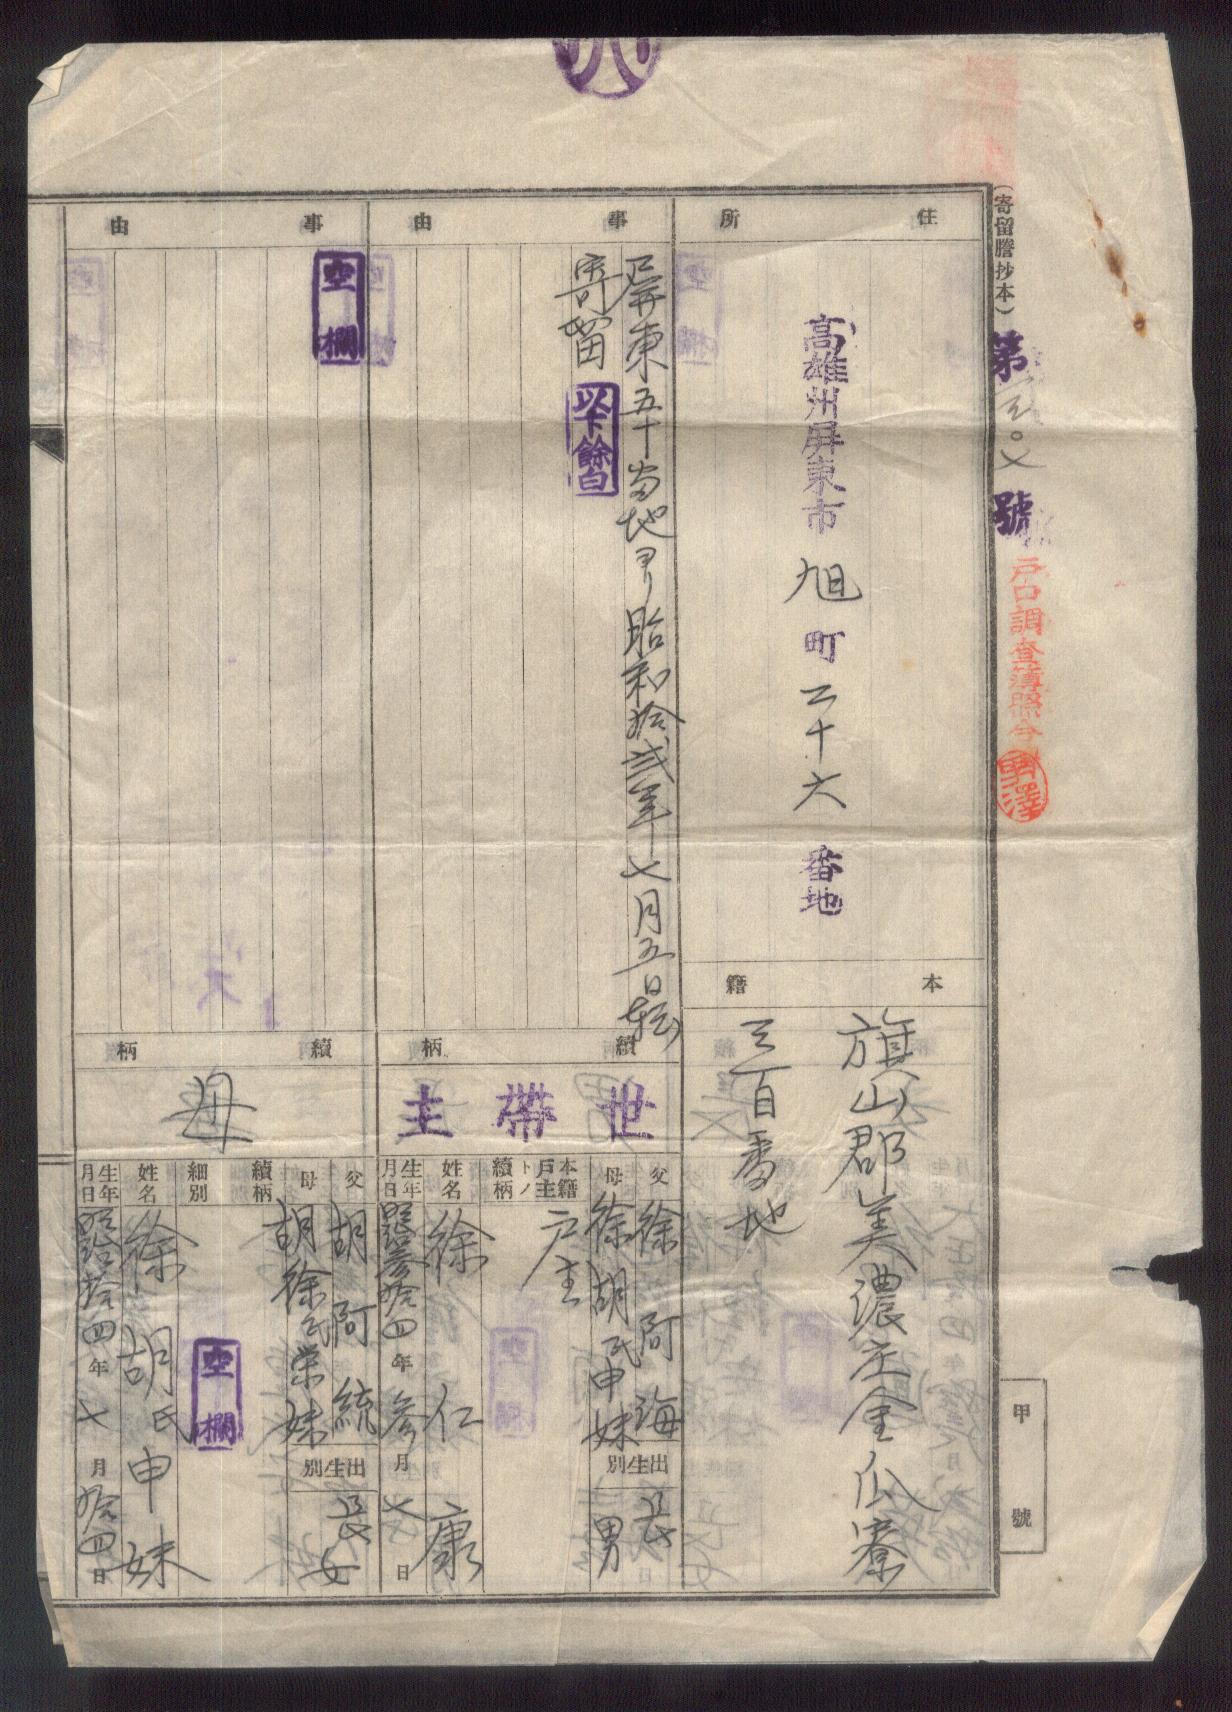 (寄留謄抄本)
第
號
戶口調查簿照合
甲 號
住所
高雄州屏東市旭町二十六番地
本籍
旗山郡美濃庄金瓜寮
三百番地
事由
屏東五十番地ヨリ昭和拾貳年七月五日轉
寄留
以下餘白
續柄
世帶主
父 徐阿海
母 徐胡氏申妹
出生別
長男
本籍戶主トノ續柄
戶主
姓名
徐仁康
生年月日
明治參拾四年參月七日
事由
空欄
續柄
母
父 胡阿統
母 胡徐氏榮妹
出生別
長女
續柄
細別
空欄
姓名
徐胡氏申妹
生年月日
明治拾四年七月拾四日